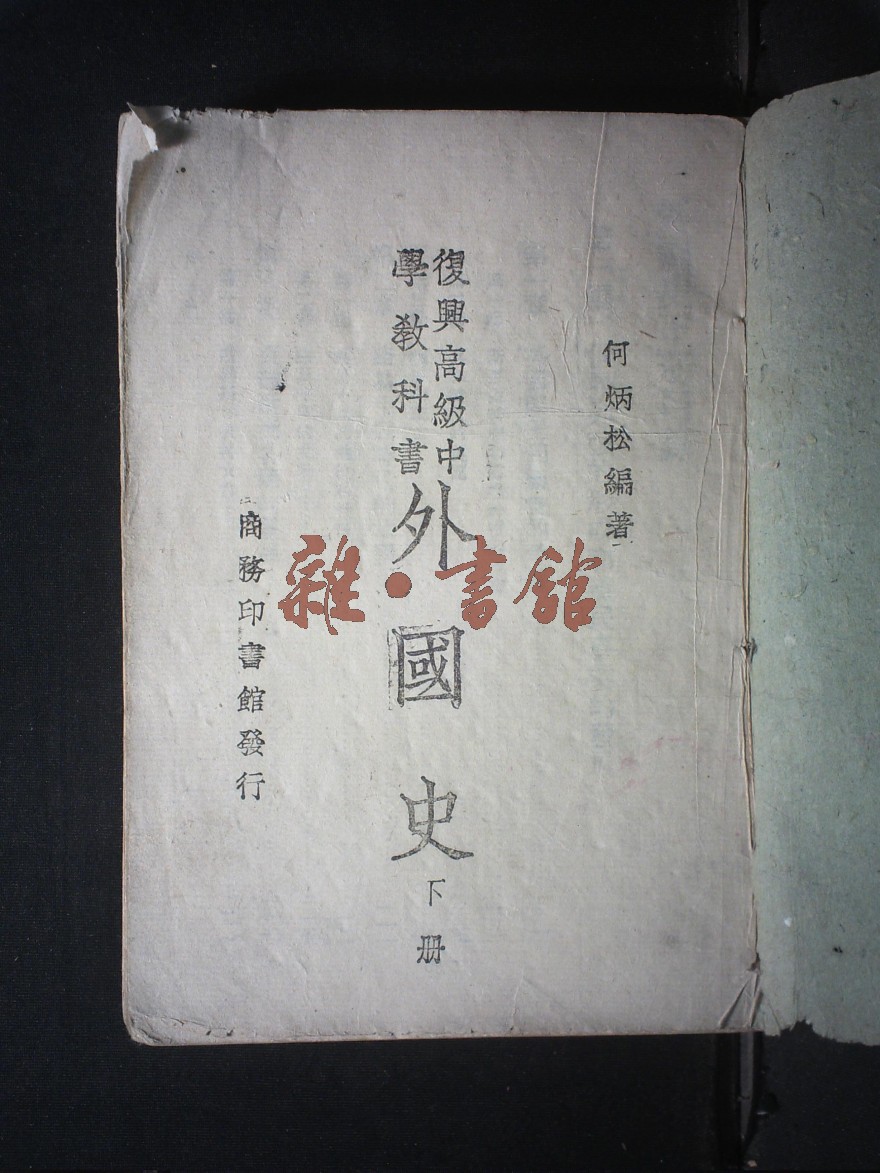 何炳松編著
復興高級中
學教科書
外國史
下册
商務印書館發行
雜·書館